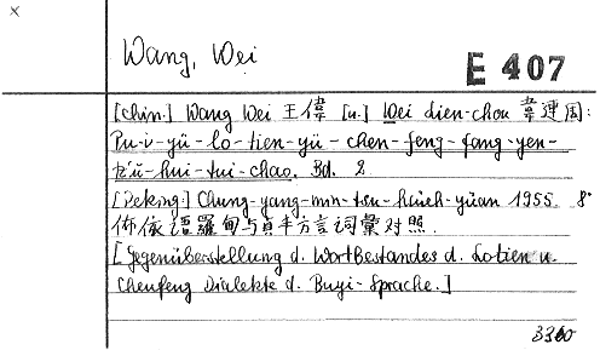 x
Wang, Wei
E 407
[chin.] Wang Wei 王偉 [u.] Wei Lien-chou 韋連周:
Pu-i-yü-lo-tien-yü-chen-feng-fang-yen-
tz'ŭ-hui-tui-chao. Bd. 2
[Peking:] Chung-yang-min-tsu-hsüeh-yüan 1955 8°
佈依语羅甸与貞丰方言词彙对照.
[Gegenüberstellung d. Wortbestandes d. Lotien u.
Chenfeng Dialekte d. Buyi-Sprache.]
3360